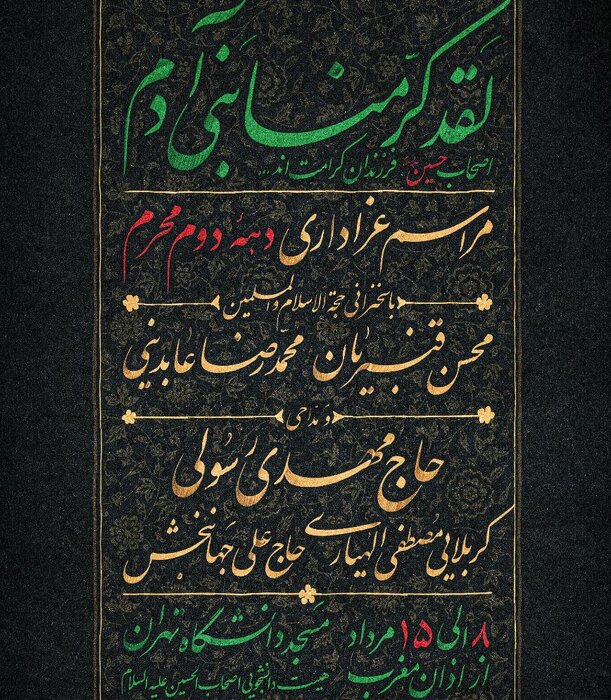 لَقَد کَرَّمنا بَنی آدم
اصحاب حسین فرزندان کرامت‌اند...
مراسم عزاداری دههٔ دوم محرم
با سخنرانی حجة الاسلام والمسلمین
محسن قنبریان محمدرضا عابدینی
و مداحی
حاج مهدی رسولی
کربلایی مصطفی الهیاری حاج علی جهانبخش
۸ الی ۱۵ مرداد مسجد دانشگاه تهران
از اذان مغرب هیئت دانشجویی اصحاب الحسین علیه السلام